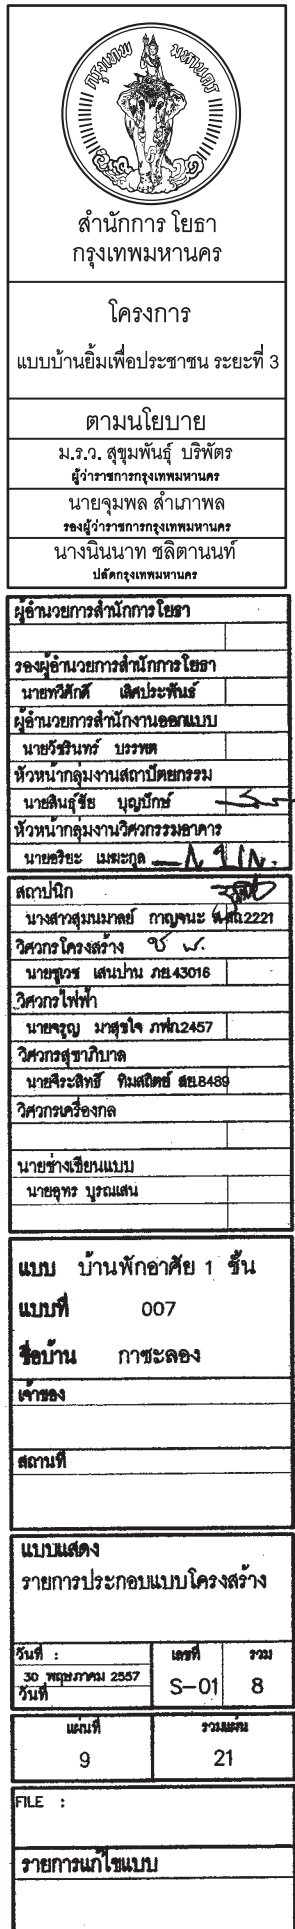 กรุงเทพ มหานคร
สำนักการ โยธา
กรุงเทพมหานคร
โครงการ
แบบบ้านยิ้มเพื่อประชาชน ระยะที่ 3
ตามนโยบาย
ม.ร.ว. สุขุมพันธุ์ บริพัตร
ผู้ว่าราชการกรุงเทพมหานคร
นายจุมพล สำเภาพล
รองผู้ว่าราชการกรุงเทพมหานคร
นางนินนาท ชลิตานนท์
ปลัดกรุงเทพมหานคร
ผู้อำนวยการสำนักการโยธา
รองผู้อำนวยการสำนักการโยธา
นายทวีศักดิ์ เลิศประพันธ์
ผู้อำนวยการสำนักงานออกแบบ
นายวัชรินทร์ บรรพต
หัวหน้ากลุ่มงานสถาปัตยกรรม
นายสินธุ์ชัย บุญปักษ์
หัวหน้ากลุ่มงานวิศวกรรมอาคาร
นายอริยะ เมฆะกูล
สถาปนิก
นางสาวสุมนมาลย์ กาญจนะ 2221
วิศวกรโครงสร้าง
นายชูเวช เสนปาน ภย.43016
วิศวกรไฟฟ้า
นายจรูญ มาสุขใจ ภฟก.2457
วิศวกรสุขาภิบาล
นายจีระสิทธิ์ ทิมสถิตย์ สย.8489
วิศวกรเครื่องกล
นายช่างเขียนแบบ
นายอุทร บูรณเสน
แบบ บ้านพักอาศัย 1 ชั้น
แบบที่ 007
ชื่อบ้าน กาซะลอง
เจ้าของ
สถานที่
แบบแสดง
รายการประกอบแบบโครงสร้าง
วันที่ : เลขที่ รวม
30 พฤษภาคม 2557 S-01 8
วันที่
แผ่นที่ รวมแผ่น
9 21
FILE :
รายการแก้ไขแบบ